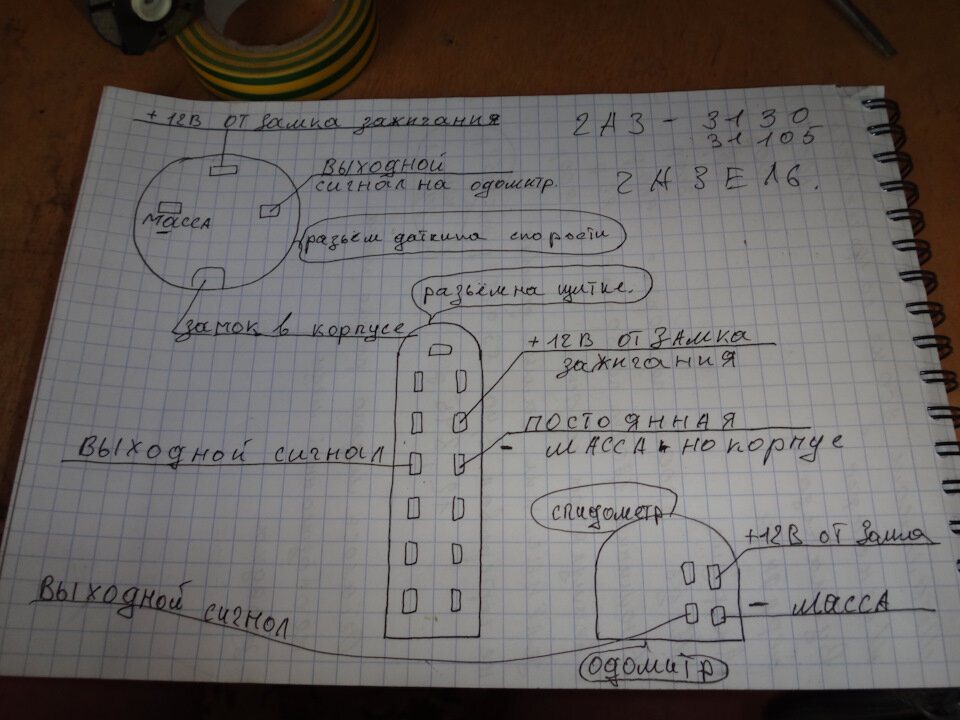 + 12В ОТ Замка зажигания
2АЗ - 3130
31105
2АЗЕ16.
ВЫХОДНОЙ
сигнал на одометр.
МАССА
разъем датчика скорости
разъем на щитке.
замок в корпусе
+12В ОТ ЗАМКА
зажигания
ПОСТОЯННАЯ
- МАССА - на корпус
ВЫХОДНОЙ сигнал
спидометр
+12В ОТ Замка
ВЫХОДНОЙ сигнал
- МАССА
одомитр